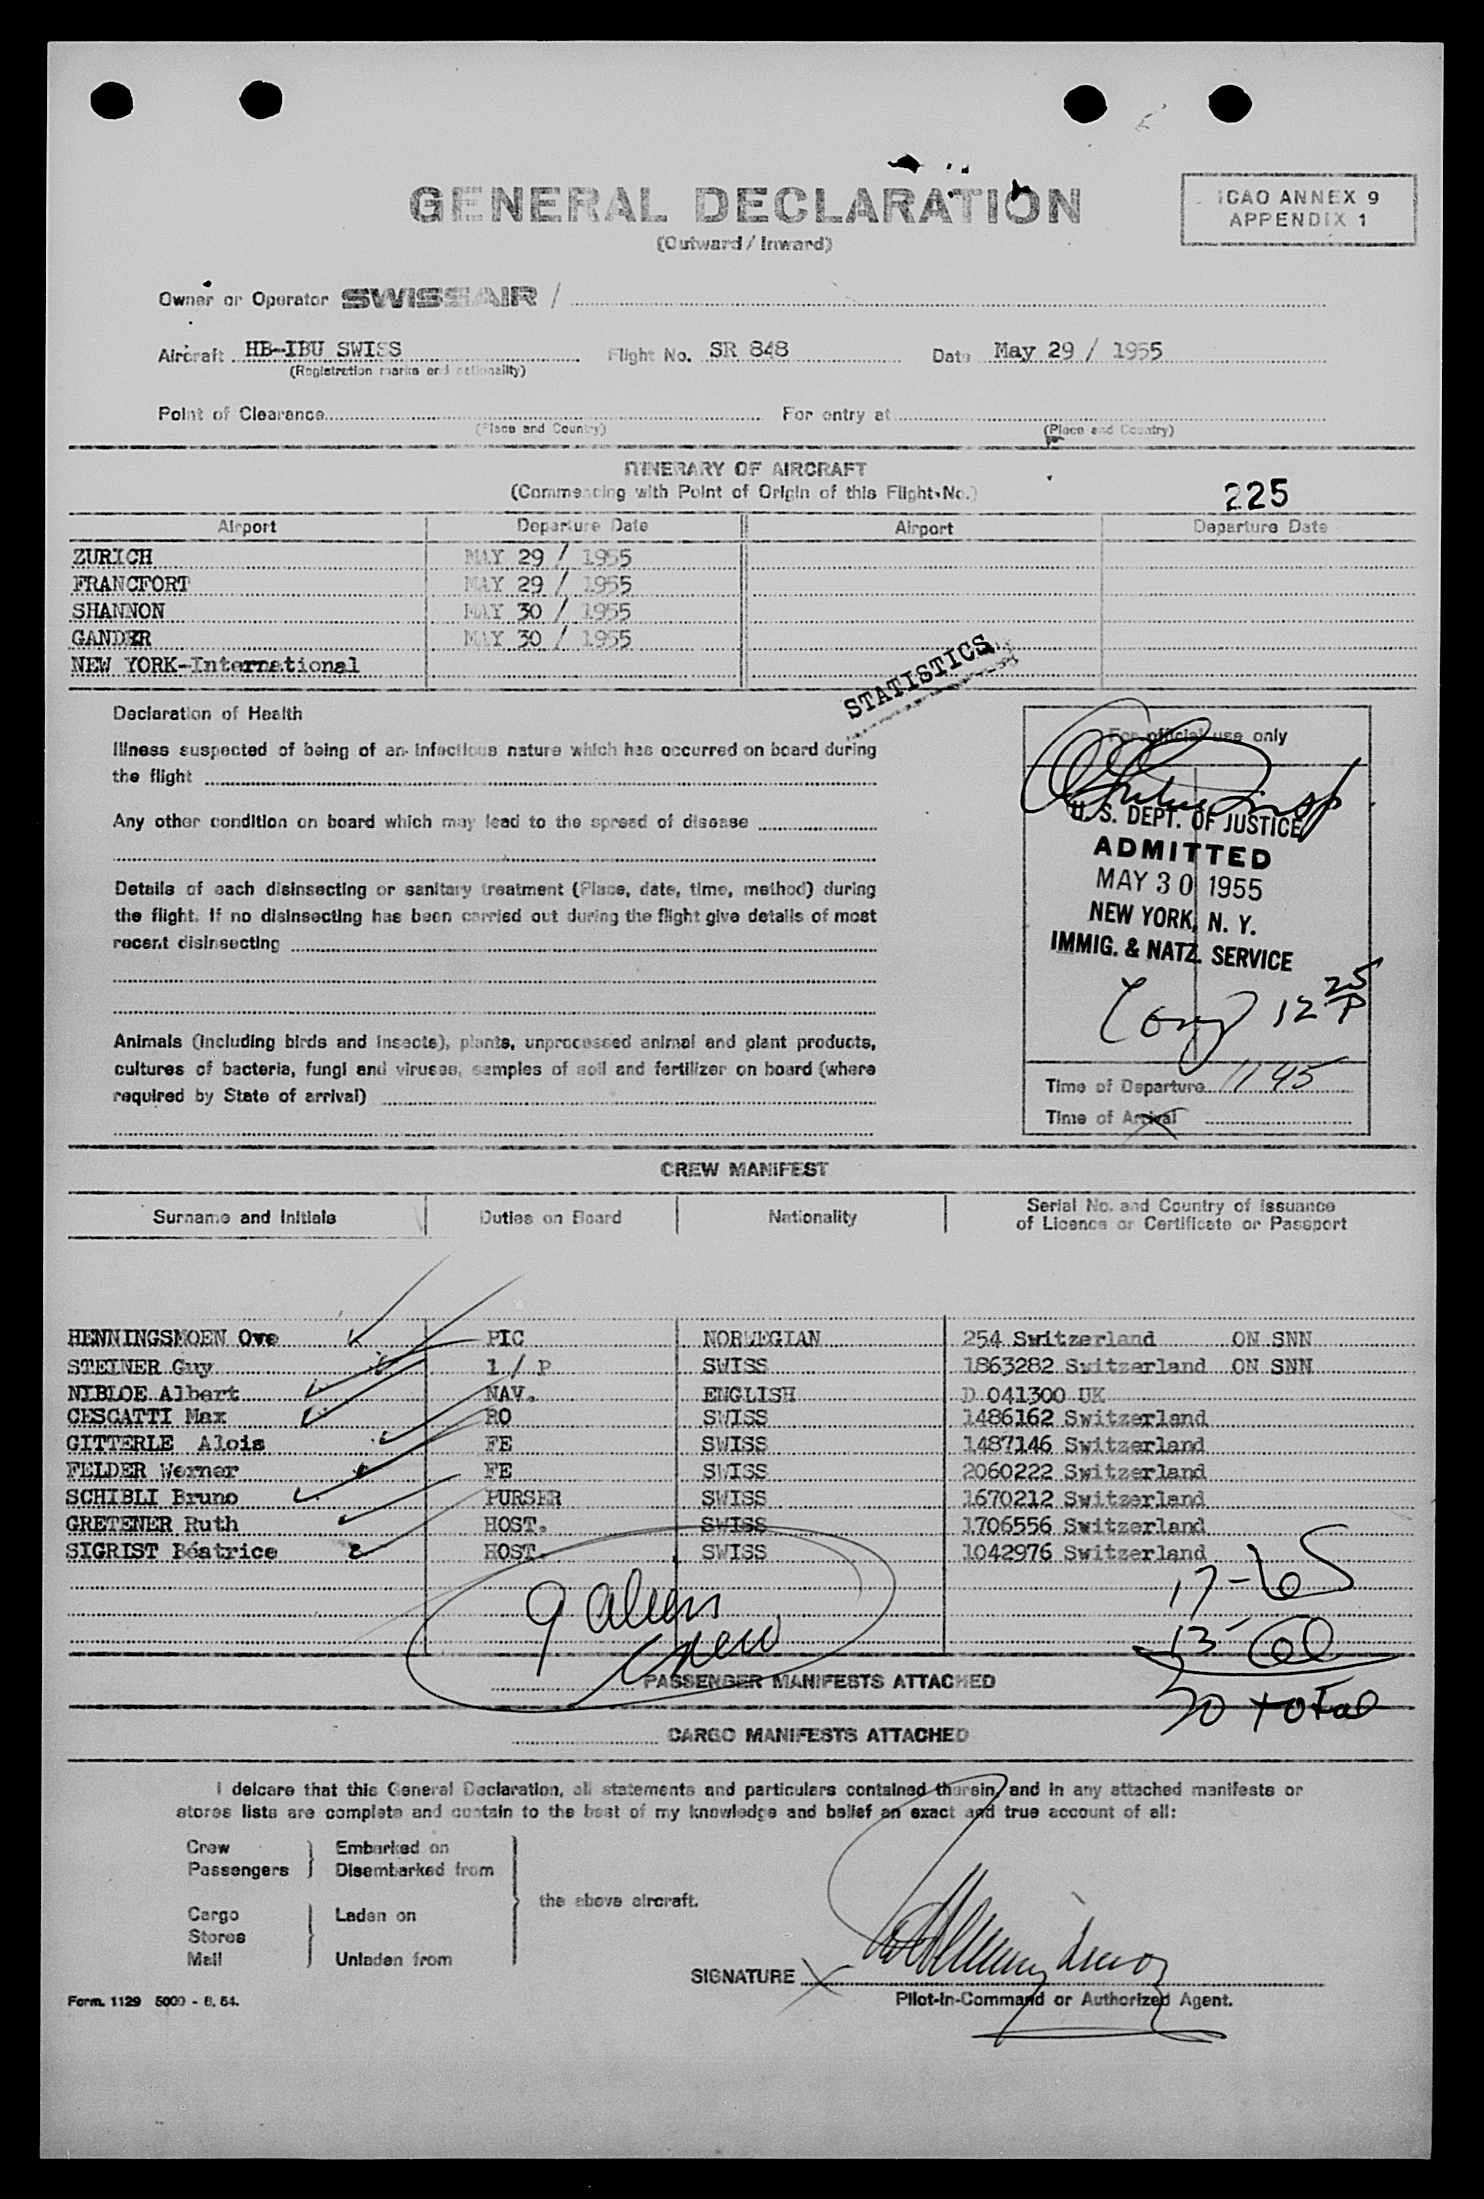 GENERAL DECLARATION
(Outward / Inward)
ICAO ANNEX 9
APPENDIX 1
Owner or Operator SWISSAIR /
Aircraft HB-IBU SWISS Flight No. SR 848 Date May 29 / 1955
(Registration marks and nationality)
Point of Clearance For entry at
(Place and Country) (Place and Country)
ITINERARY OF AIRCRAFT
(Commencing with Point of Origin of this Flight-No.)
225
Airport Departure Date Airport Departure Date
ZURICH MAY 29 / 1955
FRANCFORT MAY 29 / 1955
SHANNON MAY 30 / 1955
GANDER MAY 30 / 1955
NEW YORK-International
STATISTICS
Declaration of Health
Illness suspected of being of an infectious nature which has occurred on board during
the flight
Any other condition on board which may lead to the spread of disease
Details of each disinsecting or sanitary treatment (Place, date, time, method) during
the flight. If no disinsecting has been carried out during the flight give details of most
recent disinsecting
Animals (including birds and insects), plants, unprocessed animal and plant products,
cultures of bacteria, fungi and viruses, samples of soil and fertilizer on board (where
required by State of arrival)
For official use only
U. S. DEPT. OF JUSTICE
ADMITTED
MAY 30 1955
NEW YORK, N. Y.
IMMIG. & NATZ. SERVICE
12 25 P
Time of Departure 11 45
Time of Arrival
CREW MANIFEST
Surname and Initials Duties on Board Nationality Serial No. and Country of Issuance
of Licence or Certificate or Passport
HENNINGSMOEN Ove PIC NORWEGIAN 254 Switzerland ON SNN
STEINER Guy 1 / P SWISS 1863282 Switzerland ON SNN
NIBLOE Albert NAV. ENGLISH D 041300 UK
CESCATTI Max RO SWISS 1486162 Switzerland
GITTERLE Alois FE SWISS 1487146 Switzerland
FELDER Werner FE SWISS 2060222 Switzerland
SCHIBLI Bruno PURSER SWISS 1670212 Switzerland
GRETENER Ruth HOST. SWISS 1706556 Switzerland
SIGRIST Béatrice HOST. SWISS 1042976 Switzerland
9 aliens
crew
17 - US
13 - al
30 total
PASSENGER MANIFESTS ATTACHED
CARGO MANIFESTS ATTACHED
I delcare that this General Declaration, all statements and particulars contained therein, and in any attached manifests or
stores lists are complete and contain to the best of my knowledge and belief an exact and true account of all:
Crew Embarked on
Passengers Disembarked from
the above aircraft.
Cargo Laden on
Stores
Mail Unladen from
SIGNATURE X
Pilot-in-Command or Authorized Agent.
Form. 1129 5000 - 8. 54.